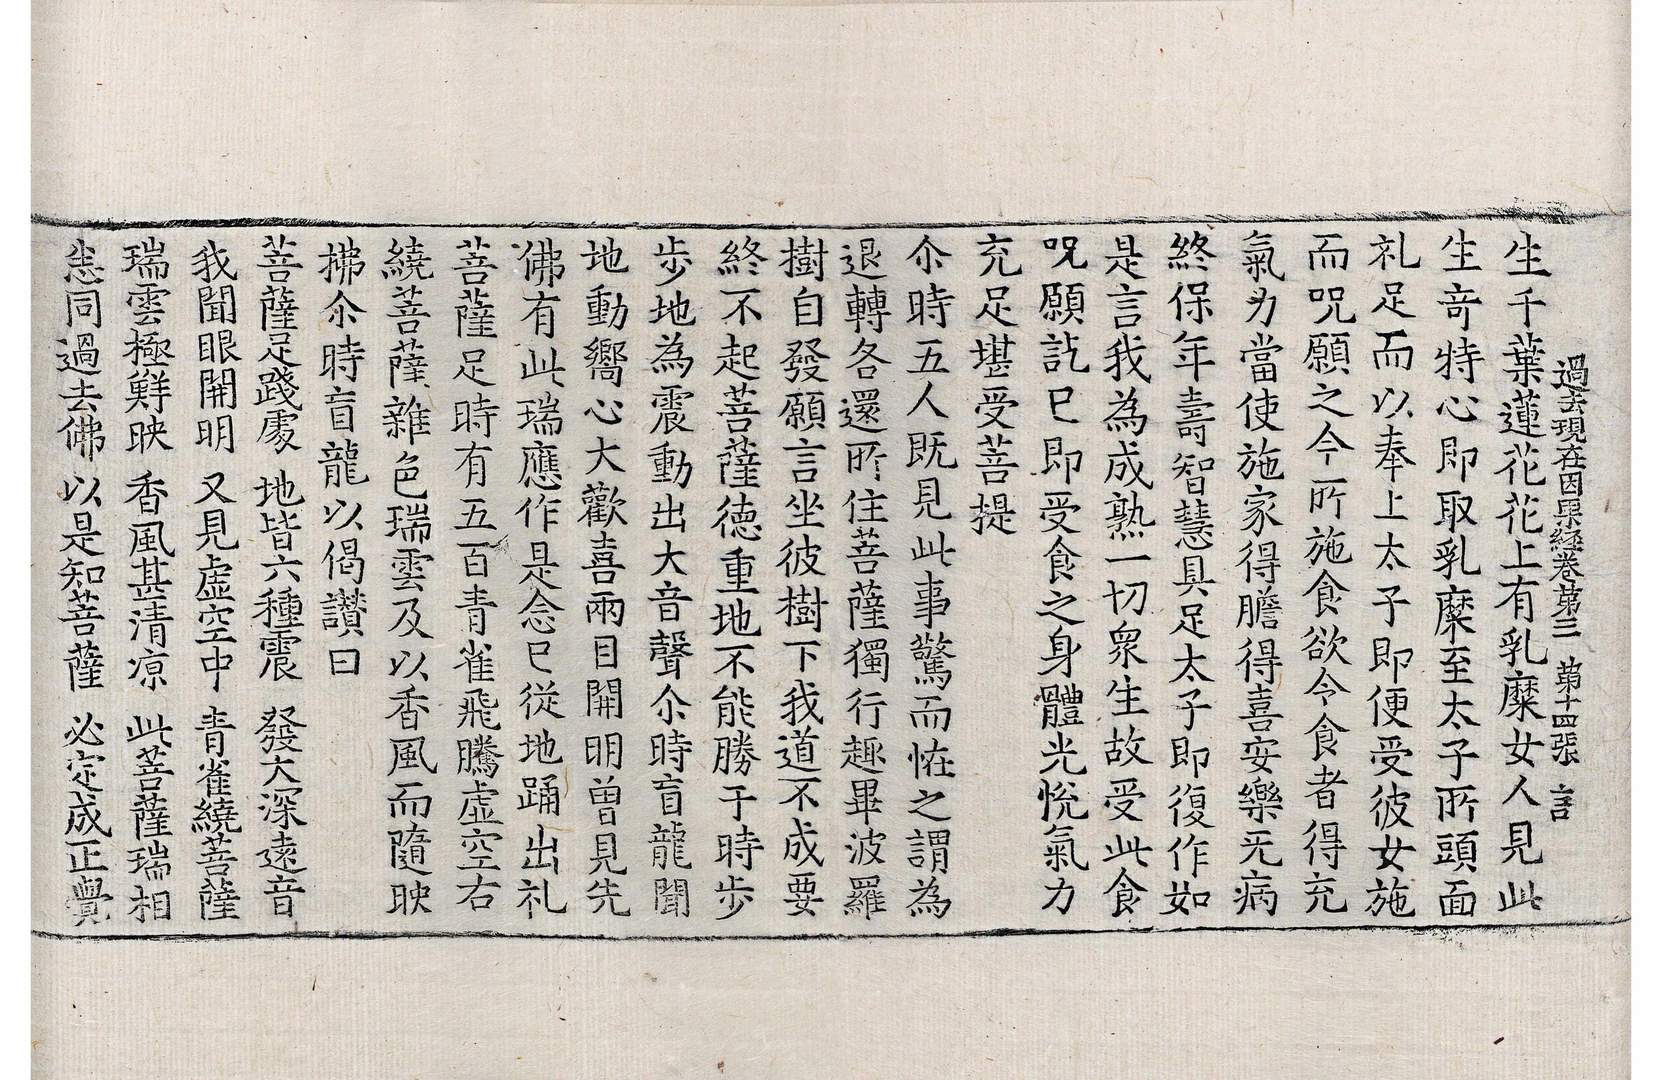 過去現在因果経卷第三　第十四張　言
生千葉蓮花花上有乳糜女人見此
生竒特心即取乳糜至太子所頭面
礼足而以奉上太子即便受彼女施
而呪願之今所施食欲令食者得充
氣力當使施家得膽得喜安樂无病
終保年壽智慧具足太子即復作如
是言我為成熟一切衆生故受此食
呪願訖已即受食之身體光悅氣力
充足堪受菩提
尒時五人既見此事驚而恠之謂為
退轉各還所住菩薩獨行趣畢波羅
樹自發願言坐彼樹下我道不成要
終不起菩薩德重地不能勝于時步
步地為震動出大音聲尒時盲龍聞
地動響心大歡喜兩目開明曽見先
佛有此瑞應作是念已從地踊出礼
菩薩足時有五百青雀飛騰虛空右
繞菩薩雜色瑞雲及以香風而隨映
拂尒時盲龍以偈讃曰
菩薩足踐處　地皆六種震　發大深遠音
我聞眼開明　又見虛空中　青雀繞菩薩
瑞雲極鮮映　香風甚清凉　此菩薩瑞相
悉同過去佛　以是知菩薩　必定成正覺